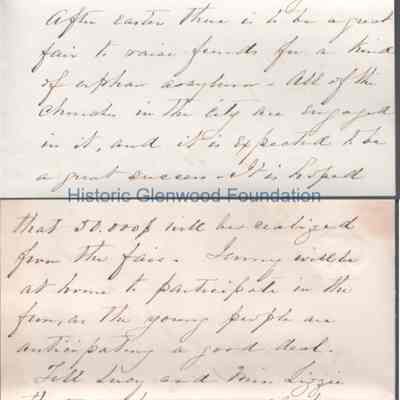 After easter there is to be a great
fair to raise funds for a kind
of orphan assylum. All of the
churches in the city are engaged
in it, and it is expected to be
a great success. It is hoped
Historic Glenwood Foundation
that 50.000$ will be realized
from the fair. Jenny will be
at home to participate in the
fun, as the young people are
anticipating a good deal.
Tell Lucy and Miss Lizzie